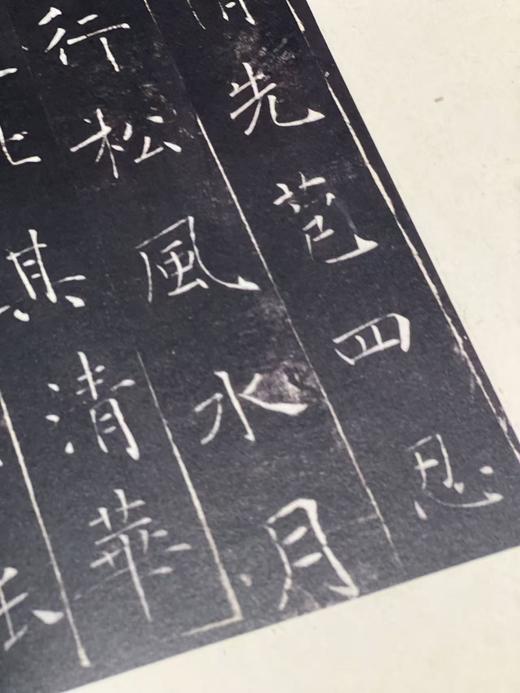 先苞四忍
行松風水月
比其清華